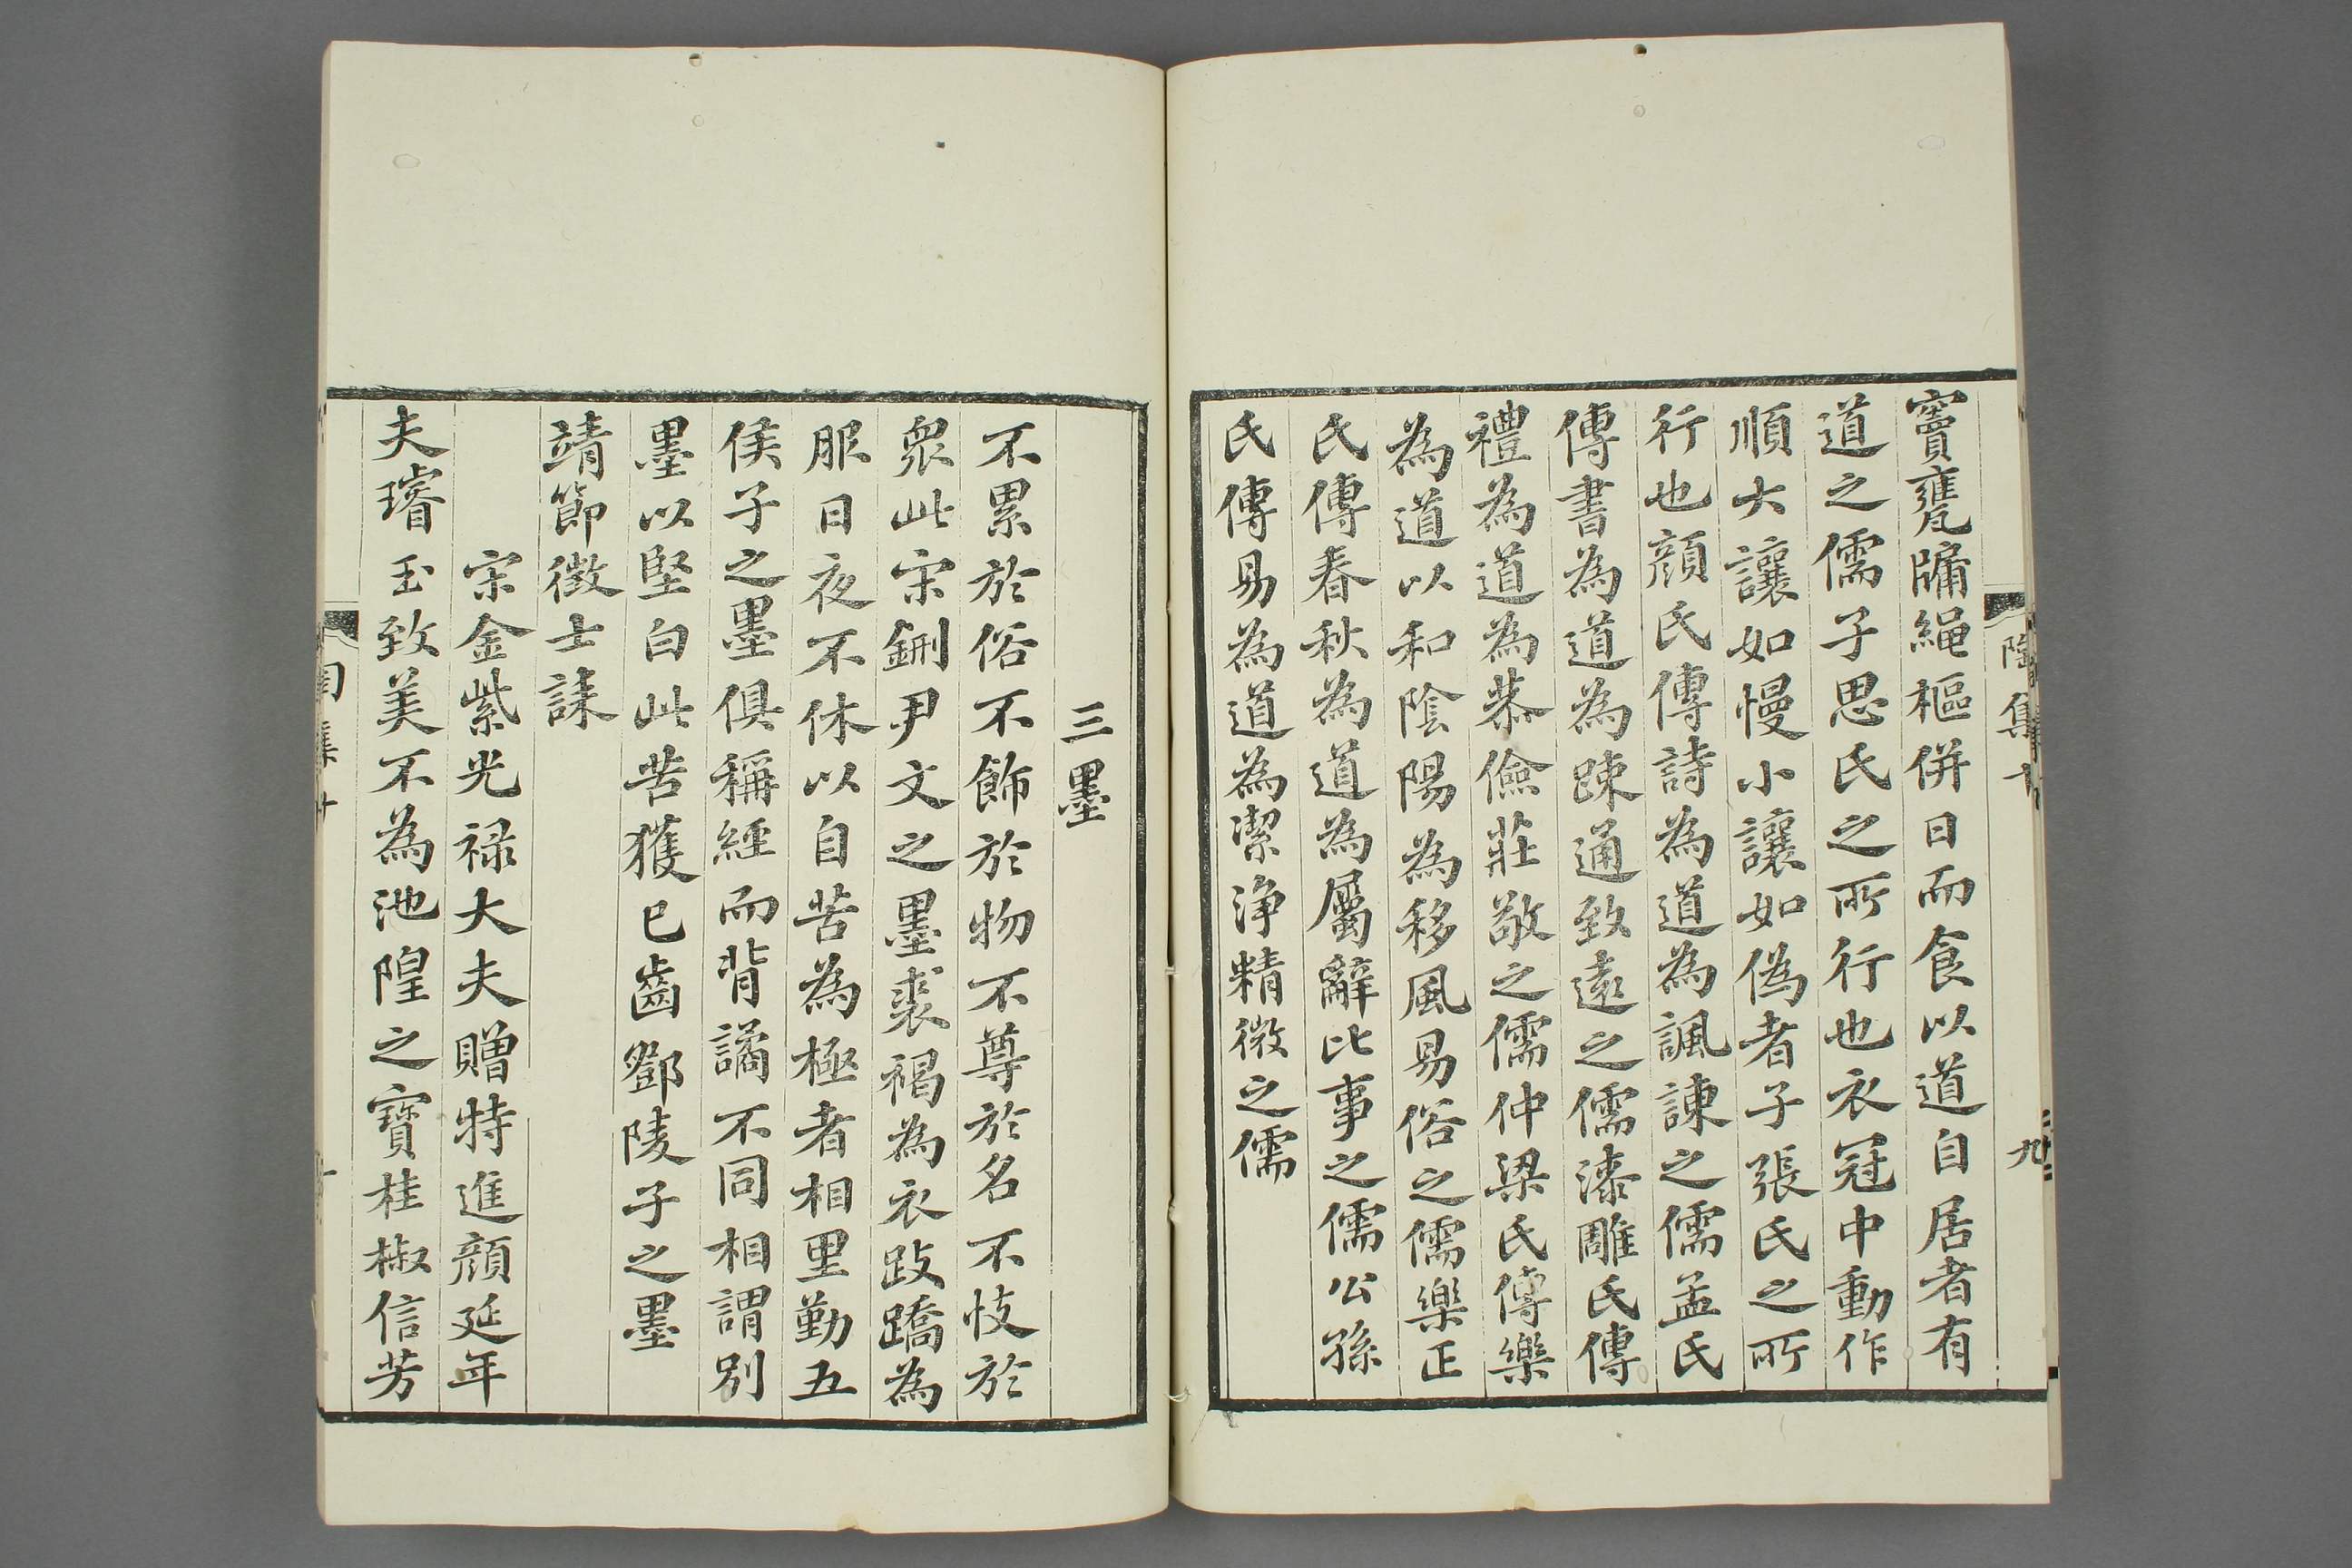 竇甕牖繩樞併日而食以道自居者有
道之儒子思氏之所行也衣冠中動作
順大讓如慢小讓如偽者子張氏之所
行也顔氏傳詩為道為諷諫之儒孟氏
傳書為道為踈通致遠之儒漆雕氏傳
禮為道為恭儉莊敬之儒仲梁氏傳樂
為道以和陰陽為移風易俗之儒樂正
氏傳春秋為道為屬辭比事之儒公孫
氏傳易為道為潔淨精微之儒
三墨
不累於俗不飾於物不尊於名不忮於
衆此宋鈃尹文之墨裘褐為衣跂蹻為
服日夜不休以自苦為極者相里勤五
侯子之墨俱稱經而背譎不同相謂别
墨以堅白此苦獲已齒鄧陵子之墨
靖節徵士誄
宋金紫光禄大夫贈特進顔延年
夫璿玉致美不為池隍之寶桂椒信芳